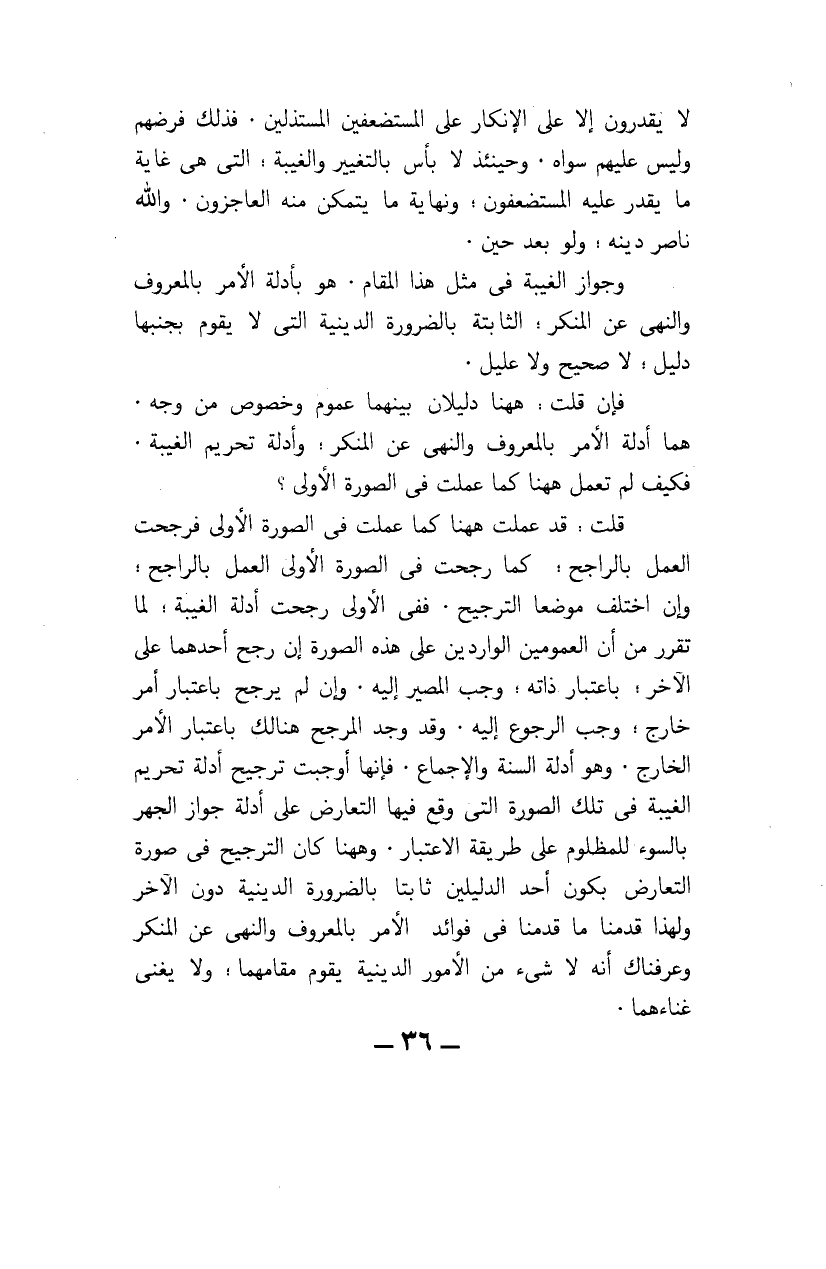 لا يقدرون إلا على الإنكار على المستضعفين المستذلين ٠ فذلك فرضهم
وليس عليهم سواه ٠ وحينئذ لا بأس بالتغيير والغيبة ؛ التى هى غاية
ما يقدر عليه المستضعفون ؛ ونهاية ما يتمكن منه العاجزون ٠ والله
ناصر دينه ؛ ولو بعد حين ٠
وجواز الغيبة فى مثل هذا المقام ٠ هو بأدلة الأمر بالمعروف
والنهى عن المنكر ؛ الثابتة بالضرورة الدينية التى لا يقوم بجنبها
دليل ؛ لا صحيح ولا عليل ٠
فإن قلت : ههنا دليلان بينهما عموم وخصوص من وجه ٠
هما أدلة الأمر بالمعروف والنهى عن المنكر ؛ وأدلة تحريم الغيبة ٠
فكيف لم تعمل ههنا كما عملت فى الصورة الأولى ؟
قلت : قد عملت ههنا كما عملت فى الصورة الأولى فرجحت
العمل بالراجح ؛ كما رجحت فى الصورة الأولى العمل بالراجح ؛
وإن اختلف موضعا الترجيح ٠ ففى الأولى رجحت أدلة الغيبة ؛ لما
تقرر من أن العمومين الواردين على هذه الصورة إن رجح أحدهما على
الآخر ؛ باعتبار ذاته ؛ وجب المصير إليه ٠ وإن لم يرجح باعتبار أمر
خارج ؛ وجب الرجوع إليه ٠ وقد وجد المرجح هنالك باعتبار الأمر
الخارج ٠ وهو أدلة السنة والإجماع ٠ فإنها أوجبت ترجيح أدلة تحريم
الغيبة فى تلك الصورة التى وقع فيها التعارض على أدلة جواز الجهر
بالسوء للمظلوم على طريقة الاعتبار ٠ وههنا كان الترجيح فى صورة
التعارض بكون أحد الدليلين ثابتا بالضرورة الدينية دون الآخر
ولهذا قدمنا ما قدمنا فى فوائد الأمر بالمعروف والنهى عن المنكر
وعرفناك أنه لا شىء من الأمور الدينية يقوم مقامهما ؛ ولا يغنى
غناءهما ٠
— ٣٦ —